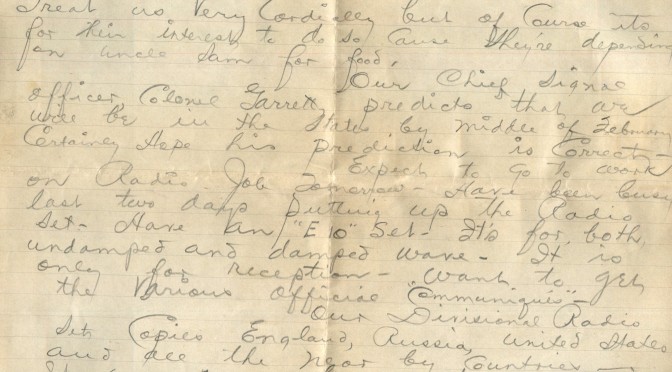 Treat us Very Cordially but of Course its
for their interest to do so cause they're depending
on uncle Sam for food.
Our Chief Signal
officer Colonel Garrett predicts that we
will be in the States by middle of February
Certainly Hope his prediction is Correct -
Expect to go to work
on Radio Job Tomorrow - Have been busy
last two days putting up the Radio
Set - Have an "E10" Set - It's for both
undamped and damped wave - It is
only for reception - want to get
the Various Official "Communiques" -
Our Divisional Radio
Set Copies England, Russia, United States
and all the near by Countries -